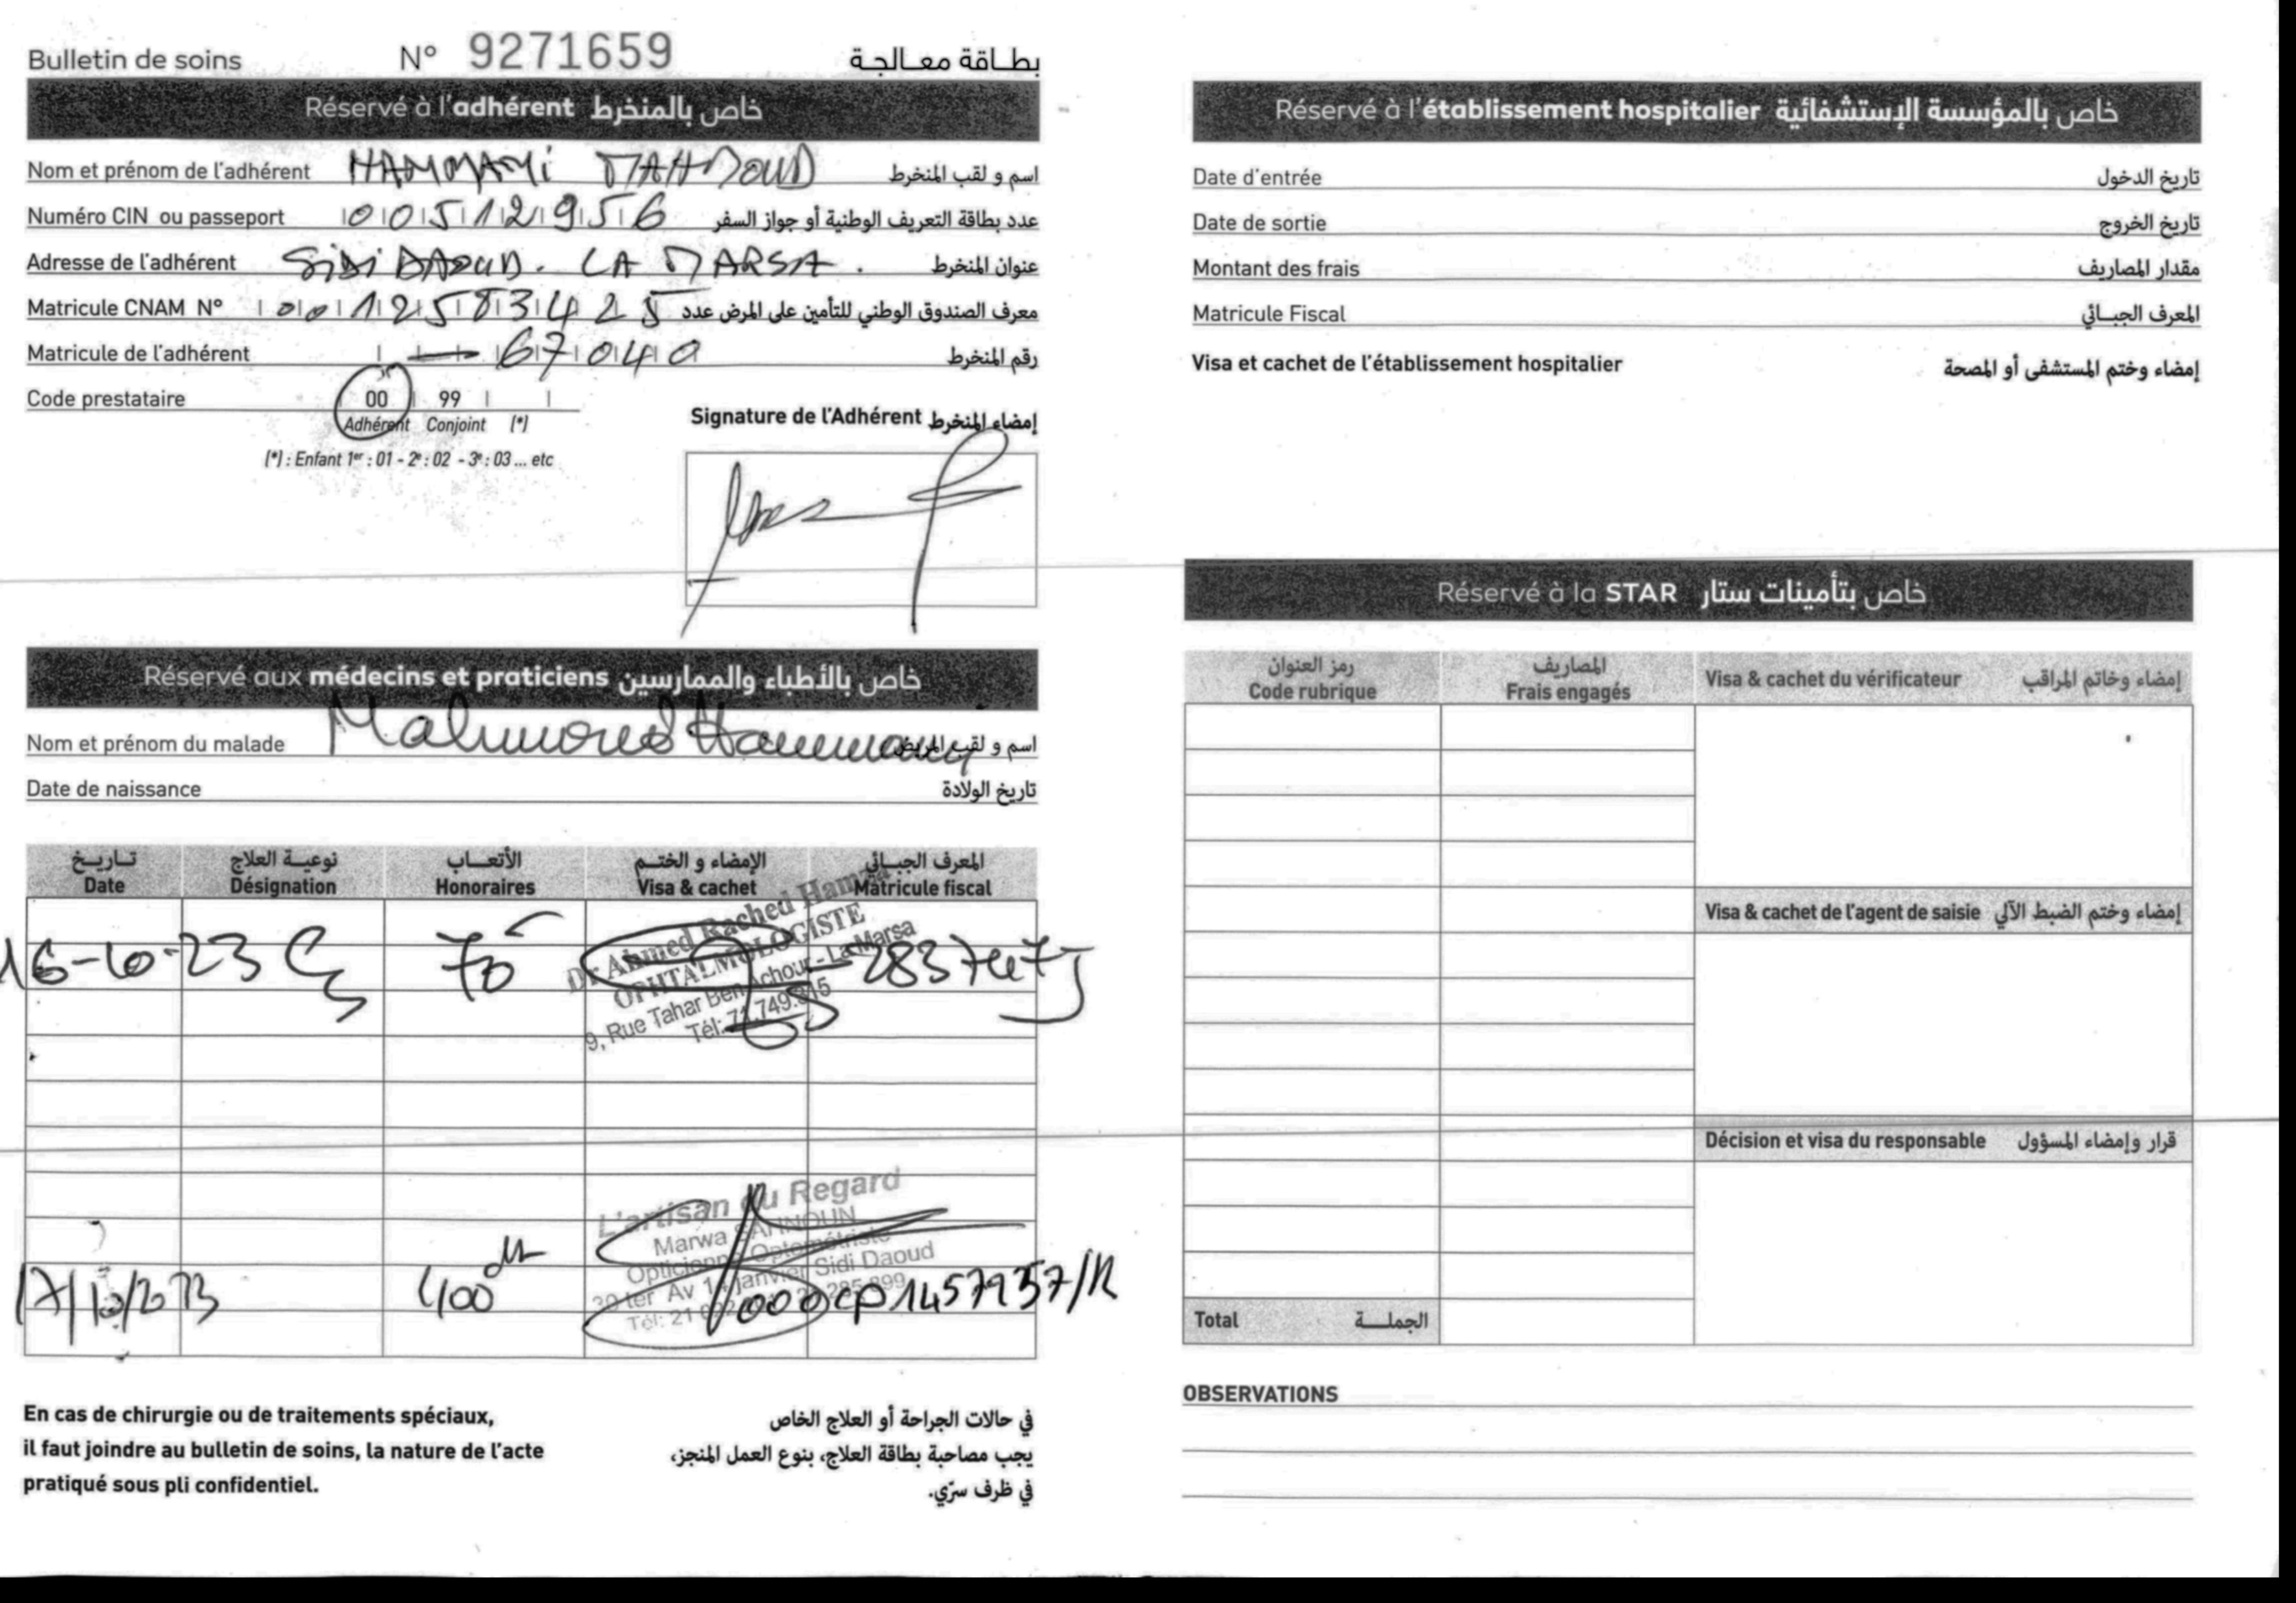 Bulletin de soins N° 9271659 بطاقة معالجة
Réservé à l'adhérent خاص بالمنخرط
Nom et prénom de l'adhérent HAMMAMi MAHMOUD اسم و لقب المنخرط
Numéro CIN ou passeport 005112956 عدد بطاقة التعريف الوطنية أو جواز السفر
Adresse de l'adhérent SiDi DAOUD. LA MARSA. عنوان المنخرط
Matricule CNAM N° معرف الصندوق الوطني للتأمين على المرض عدد
Matricule de l'adhérent 67040 رقم المنخرط
Code prestataire 00 99
Adhérent Conjoint (*)
(*) : Enfant 1er : 01 - 2e : 02 - 3e : 03 ... etc
Signature de l'Adhérent إمضاء المنخرط
Réservé aux médecins et praticiens خاص بالأطباء والممارسين
Nom et prénom du malade Mahmoud Hammamy اسم و لقب المريض
Date de naissance تاريخ الولادة
تاريخ نوعية العلاج الأتعاب الإمضاء و الختم المعرف الجبائي
Date Désignation Honoraires Visa & cachet Matricule fiscal
16-10-23 70
Dr Ahmed Rached Hamza
OPHTALMOLOGISTE
9, Rue Tahar Ben Achour - La Marsa
Tél: 71.749.315
L'artisan du Regard
Marwa SAHNOUN
Opticienne Optométriste
30 ter Av 14 janvier Sidi Daoud
Tél: 21
17/10/2023 400 dt
En cas de chirurgie ou de traitements spéciaux,
il faut joindre au bulletin de soins, la nature de l'acte
pratiqué sous pli confidentiel.
في حالات الجراحة أو العلاج الخاص
يجب مصاحبة بطاقة العلاج، بنوع العمل المنجز،
في ظرف سرّي.
Réservé à l'établissement hospitalier خاص بالمؤسسة الإستشفائية
Date d'entrée تاريخ الدخول
Date de sortie تاريخ الخروج
Montant des frais مقدار المصاريف
Matricule Fiscal المعرف الجبائي
Visa et cachet de l'établissement hospitalier إمضاء وختم المستشفى أو المصحة
Réservé à la STAR خاص بتأمينات ستار
رمز العنوان المصاريف
Code rubrique Frais engagés Visa & cachet du vérificateur إمضاء وخاتم المراقب
Visa & cachet de l'agent de saisie إمضاء وختم الضبط الآلي
Décision et visa du responsable قرار وإمضاء المسؤول
Total الجملة
OBSERVATIONS